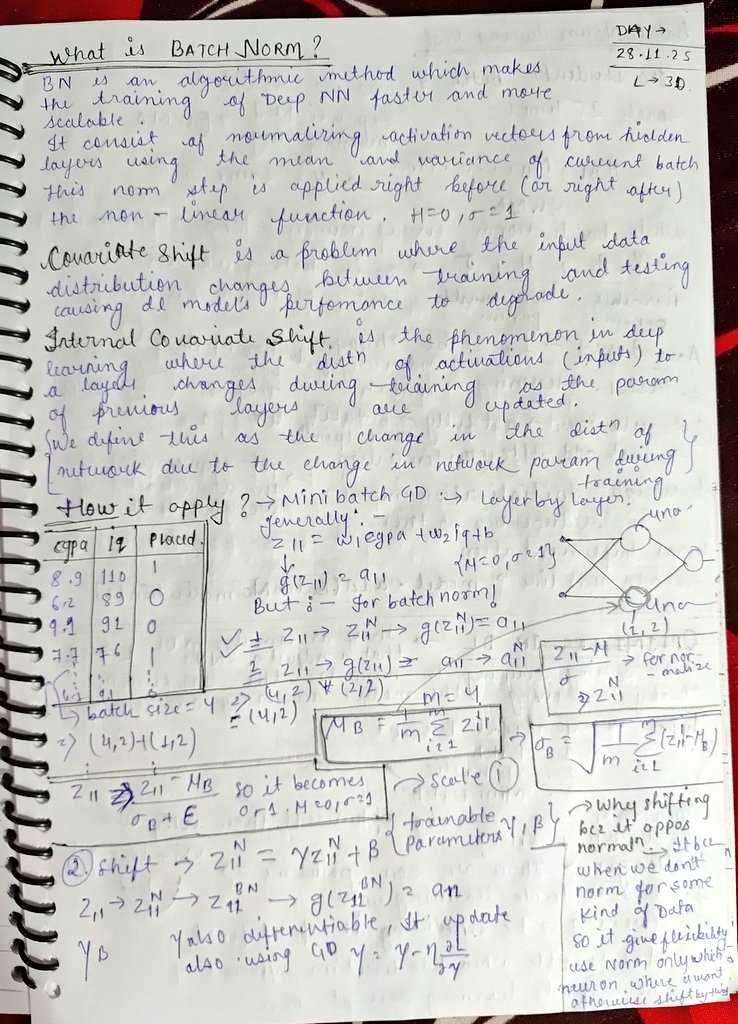 What is BATCH NORM?
DAY →
28.11.25
L → 30
BN is an algorithmic method which makes
the training of Deep NN faster and more
scalable.
It consist of normalizing activation vectors from hidden
layers using the mean and variance of current batch
This norm step is applied right before (or right after)
the non-linear function. μ=0, σ=1.
Covariate Shift is a problem where the input data
distribution changes between training and testing
causing dl model's perfomance to degrade.
Internal Covariate Shift. is the phenomenon in deep
learning where the distⁿ of activations (inputs) to
a layer changes during training as the param
of previous layers are updated.
{We define this as the change in the distⁿ of
network due to the change in network param during
training}
How it apply? → Mini batch GD → layer by layer.
generally: -
cgpa | iq | Placed.
8.9 | 110 | 1
6.2 | 89 | 0
9.1 | 92 | 0
7.7 | 76 | 1
z₁₁ = w₁cgpa + w₂iq + b
↓
g(z₁₁) = a₁₁
{μ=0, σ=1}
But :- for batch norm!
1 z₁₁ → z₁₁ᴺ → g(z₁₁ᴺ) = a₁₁
2 z₁₁ → g(z₁₁) = a₁₁ → a₁₁ᴺ
(2,2)
(z₁₁ - μ)/σ → for normalize
⇒ z₁₁ᴺ
↳ batch size = 4 ⇒ (4,2) * (2,2)
= (4,2)
⇒ (4,2)+(1,2)
m = 4
μB = 1/m Σ(i=1 to m) zᵢ₁₁
→ σB = √(1/m Σ(i=1 to m) (z₁₁ - μB))
z₁₁ ⇒ (z₁₁ - μB)/(σB + ε) so it becomes
0, 1 . μ=0, σ=1
→ Scale ①
{trainable
parameters γ, β}
② Shift → z₁₁ᴺ = γz₁₁ᴺ + β
z₁₁ → z₁₁ᴺ → z₁₁ᴮᴺ → g(z₁₁ᴮᴺ) = a₁₁
γ β
γ also differentiable, It update
also using GD γ = γ - η ∂L/∂γ
→ Why shifting
bcz it oppos
normalⁿ. → It bcz
when we don't
norm for some
kind of Data
so it give flexibility
use Norm only which
neuron where u want
otherwise shift by this